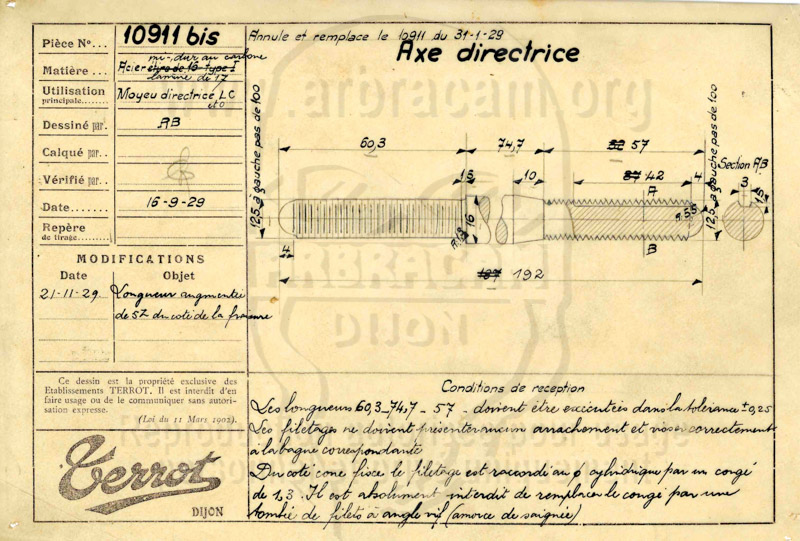 Pièce N°... 10911 bis
Annule et remplace le 10911 du 31-1-29
Axe directrice
mi-dur au carbone
Matière... Acier étiré de 16 type 1
laminé de 17
Utilisation
principale....... Moyeu directrice LC
et O
Dessiné par. RB
Calqué par..
Vérifié par..
Date....... 16-9-29
Repère
de tirage....
MODIFICATIONS
Date Objet
21-11-29. Longueur augmentée
de 5 du coté de la fraisure
12,5 à gauche pas de 100
60,3
74,7
52 57
37 42
4
15
10
16
R.1,3
A
B
R.55
4
187 192
12,5 à gauche pas de 100
Section AB
3
1,5
Ce dessin est la propriété exclusive des
Etablissements TERROT. Il est interdit d'en
faire usage ou de le communiquer sans autori-
sation expresse.
(Loi du 11 Mars 1902).
Terrot
DIJON
Conditions de reception
Les longueurs 60,3 _ 74,7 _ 57 _ doivent être exécutées dans la tolérance ± 0,25
Les filetages ne doivent présenter aucun arrachement et visser correctement
à la bague correspondante
Du coté cone fixe le filetage est raccordé au ø cylindrique par un congé
de 1,3. Il est absolument interdit de remplacer le congé par une
tombée de filets à angle vif (amorce de saignée)
www.arbracam.org
ARBRACAM
DIJON